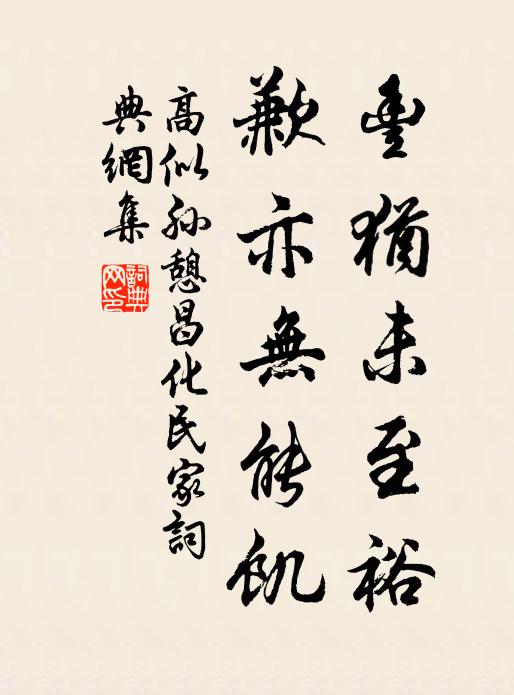 豊猶未至裕
歉亦無能飢
高似孫憩昌化民家詞
典網集
詞典网印